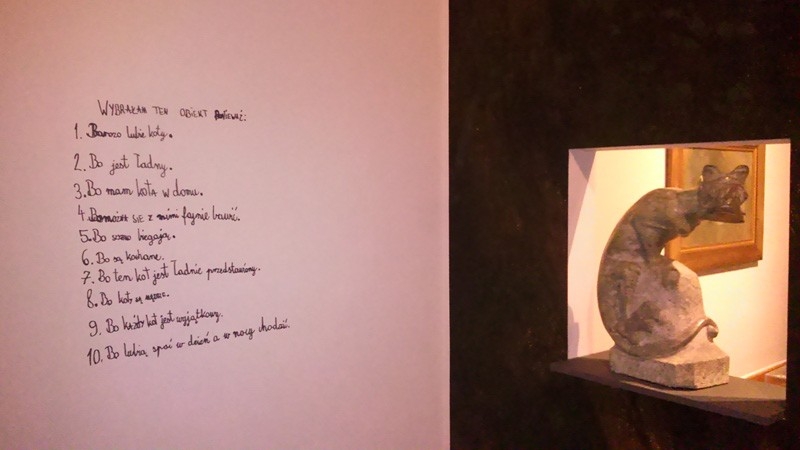 WYBRAŁAM TEN OBIEKT PONIEWAŻ:
1. Bardzo lubię koty.
2. Bo jest ładny.
3. Bo mam kota w domu.
4. Bo można się z nimi fajnie bawić.
5. Bo biegają.
6. Bo są kochane.
7. Bo ten kot jest ładnie przedstawiony.
8. Bo koty są
9. Bo każdy kot jest wyjątkowy.
10. Bo lubią spać w dzień a w nocy chodzić.